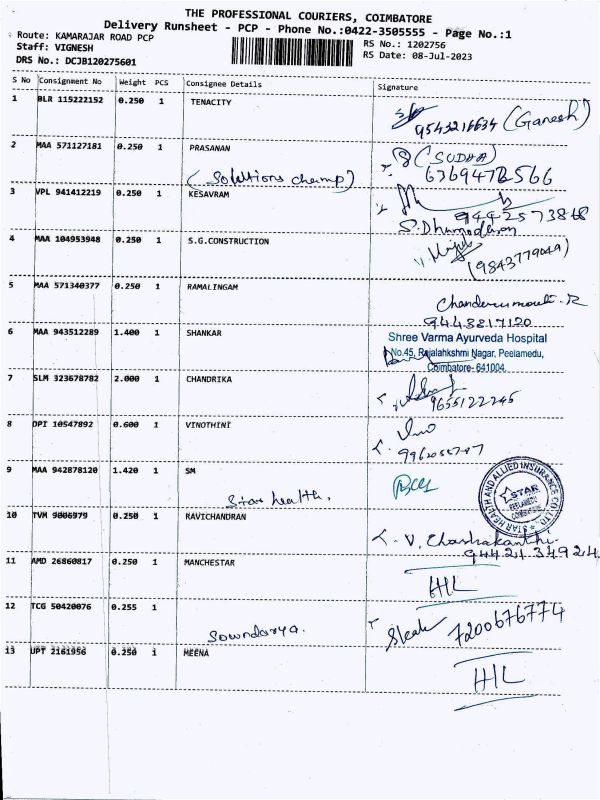 THE PROFESSIONAL COURIERS, COIMBATORE
Delivery Runsheet - PCP - Phone No.:0422-3505555 - Page No.:1
Route: KAMARAJAR ROAD PCP
RS No.: 1202756
Staff: VIGNESH
RS Date: 08-Jul-2023
DRS No.: DCJB120275601
S No Consignment No Weight PCS Consignee Details Signature
1 BLR 115222152 0.250 1 TENACITY
9543216634 (Ganesh)
2 MAA 571127181 0.250 1 PRASANAN
(SUDHA)
(Solutions champ)
3 VPL 941412219 0.250 1 KESAVRAM
S.Dhamodaran
4 MAA 104953948 0.250 1 S.G.CONSTRUCTION
(9843779049)
5 MAA 571340377 0.250 1 RAMALINGAM
9443817120
6 MAA 943512289 1.400 1 SHANKAR
Shree Varma Ayurveda Hospital
No.45, Rajalahkshmi Nagar, Peelamedu,
Coimbatore- 641004.
7 SLM 323678782 2.000 1 CHANDRIKA
9655122245
8 DPI 10547892 0.600 1 VINOTHINI
9 MAA 942878120 1.420 1 SM
Star health.
STAR HEALTH AND ALLIED INSURANCE CO. LTD.
STAR
10 TVM 9006979 0.250 1 RAVICHANDRAN
V.
11 AMD 26860817 0.250 1 MANCHESTAR
HIL
12 TCG 50420076 0.255 1
Soundarya.
7200676774
13 UPT 2161956 0.250 1 MEENA
HIL